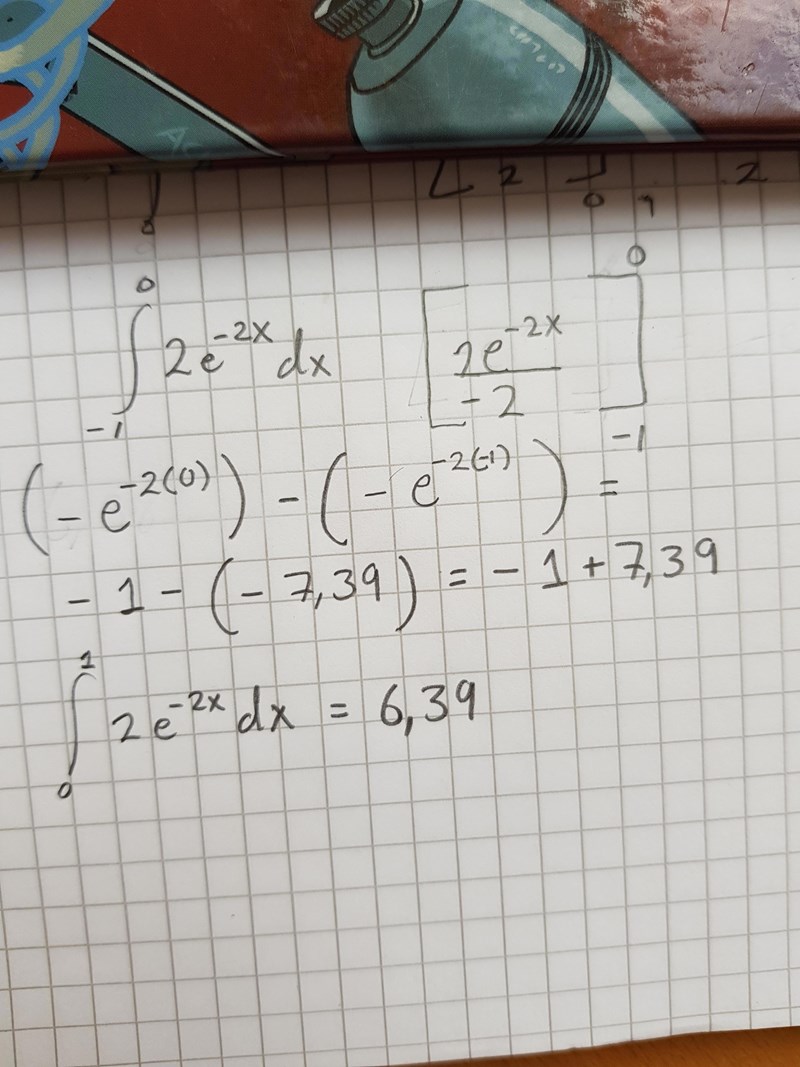 [ 2 ]0 2
∫_{-1}^{0} 2e^{-2x} dx [2e^{-2x}/-2]_{-1}^{0}
(-e^{-2(0)}) - (-e^{-2(-1)}) =
-1 - (-7,39) = -1 + 7,39
∫_{0}^{1} 2e^{-2x} dx = 6,39